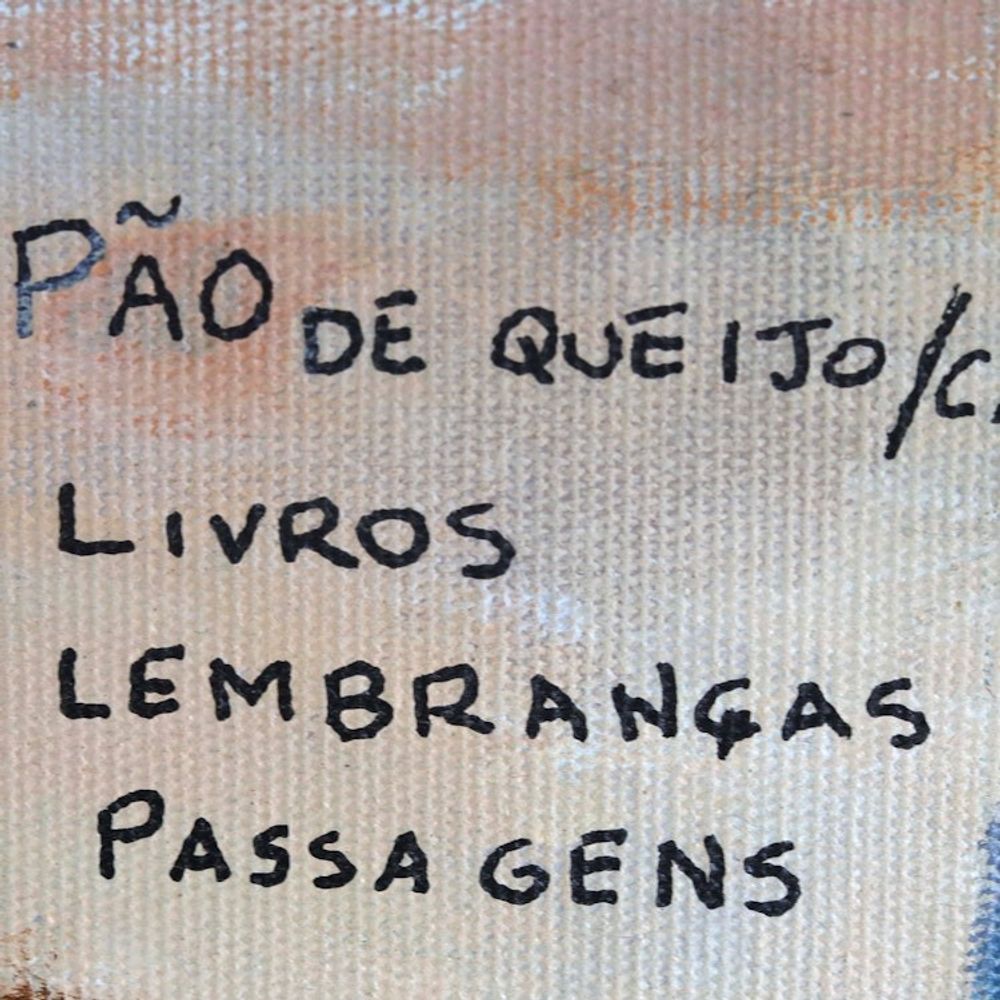 PÃO DE QUEIJO/
LIVROS
LEMBRANÇAS
PASSAGENS